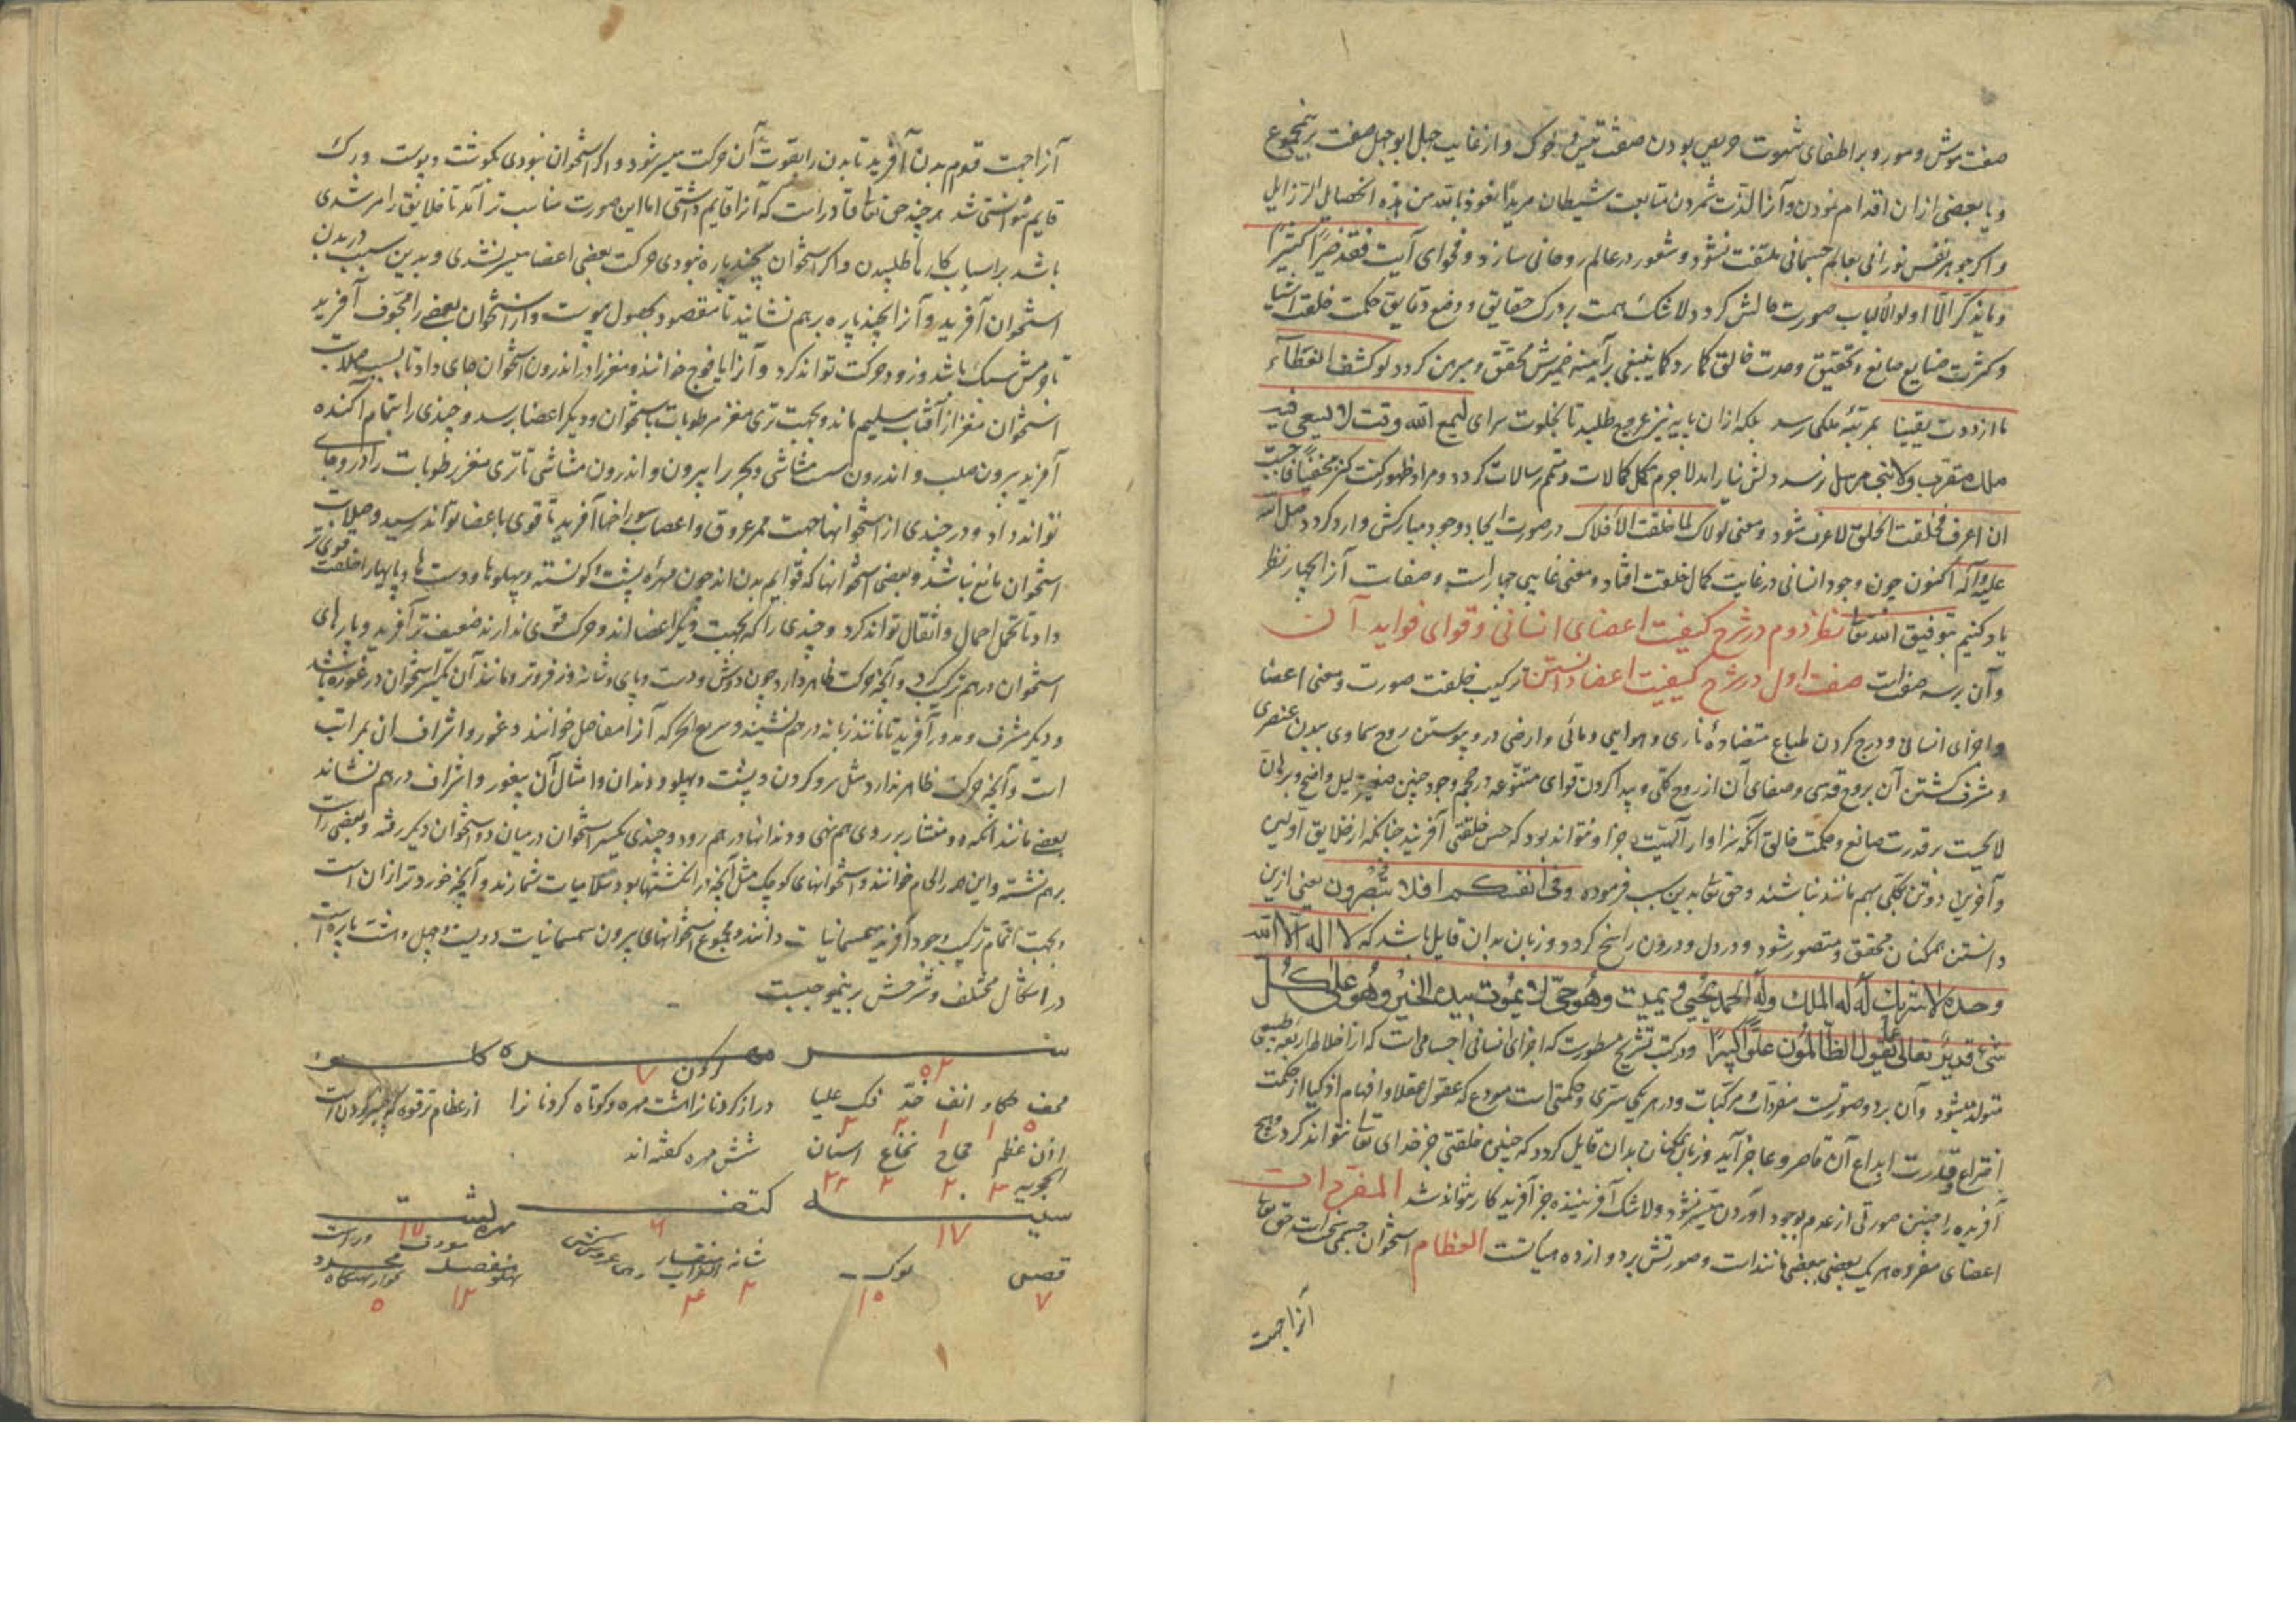 صفت موش و مور و بر اطفای شهوت حریص بودن صفت تیس و خوک و از غایت جهل ابوجهل صفت برینمجموع
و یا بعضی ازان اقدام نمودن و آنرا لذت شمردن متابعت شیطان مریدًا نعوذ بالله من هذه الخصایل الرزایل
و اگر جوهر نفس نورانی بعالم جسمانی ملتفت نشود و شعور در عالم روحانی سازد و فحوای آیت فقد خیرًا کثیرًا
و ما یذکر الّا اولوالألباب صورت حالش گردد لاشک همت بر درک حقایق و وضع دقایق حکمت خلقت اشیا
و کثرت صنایع صانع و تحقیق وحدت خالق کمارد کما ینبغی بر آینه ضمیرش محقق و مبرهن گردد لو کشف الغطاء
ما ازددت یقینا بمرتبهٔ ملکی رسد بلکه ازان پایه نیز عروج طلبد تا بخلوت سرای لی مع الله وقت لا یسعی فیه
ملک مقرب ولا نبی مرسل نرسد دلش نیاراند لاجرم مکمل کمالات و متمم رسالات گردد و مراد ظهور کنت کنزًا مخفیًا فاحببت
ان اعرف فخلقت الخلق لاعرف شود و معنی لولاک لما خلقت الافلاک در صورت ایجاد وجود مبارکش وارد گردد صلی الله
علیه و آله اکنون چون وجود انسانی در غایت کمال خلقت افتاد و معنی غایبی جبار است و صفات آنرا بچهار نظر
یاد کنیم بتوفیق الله تعا نظر دوم در شرح کیفیت اعضای انسانی و قوای فواید آن
و آن بر سه صفت است صفت اول در شرح کیفیت اعضا دانستن ترکیب خلقت صورت و معنی اعضا
و اجزای انسانی و درج کردن طباع متضادهٔ ناری و هوایی و مائی و ارضی درو پیوستن روح سماوی ببدن عنصری
و مشرف گشتن آن بروح قدسی و صفای آن از روح کلی و پیدا کردن قوای متنوعه در حجم وجود چنین صغیر دلیل واضح و برهان
لایحست بر قدرت صانع و حکمت خالق آنکه سزاوار آلهیت جز او نتواند بود که حسن خلقتی آفریند چنانکه از خلایق اولین
و آخرین دو تن بکلی بهم مانند نباشند و حق تعا بدین سبب فرموده وفی انفسکم افلا تبصرون یعنی ازین
دانستن همکنان محقق و متصور شود و در دل و درون راسخ گردد و زبان بدان قایل باشد که لا اله الا الله
وحده لا شریک له له الملک وله الحمد یحیی و یمیت وهو حی لا یموت بیده الخیر وهو علی کل
شیء قدیر تعالی عما یقول الظالمون علوًّا کبیرًا و در کتب تشریح مسطورست که اجزای انسانی اجسامی است که از اخلاط اربعه طبیعی
متولد میشود و آن بر دو صورتست مفردات و مرکبات و در هر یکی سری و حکمتی است مودع که عقول عقلا و افهام اذکیا از حکمت
اختراع و قدرت ابداع آن قاصر و عاجز آید و زبان همکنان بدان قایل گردد که چنین خلقتی جز خدای تعا نتواند کرد و هیچ
آفریده را چنین صورتی از عدم بوجود آوردن میسر نشود و لاشک آفریننده جز آفریدکار نتواند شد المفردات
اعضای مفروده هر یک بعضی ببعضی مانند است و صورتش بر دوازده هیأتست العظام استخوان جسمی سخت است حق تعا
آنرا جهت
آنرا جهت قوام بدن آفرید تا بدن را بقوت آن حرکت میسر شود و اگر استخوان نبودی بگوشت و پوست و رگ
قایم نتوانستی شد هر چند حق تعا قادر است که آنرا قایم داشتی اما این صورت مناسب تر آمد تا خلایق را مرشدی
باشد بر اسباب کارها طلبیدن و اگر استخوان بچند پاره نبودی حرکت بعضی اعضا میسر نشدی و بدین سبب در بدن
استخوان آفرید و آنرا بچند پاره بر هم نشانید تا مقصود بحصول پیوست و از استخوان بعضی را مجوف آفرید
تا و مش سبک باشد و زود حرکت تواند کرد و آنرا یافوج خوانند و مغز را در اندرون استخوان جای داد تا بسبب صلابت
استخوان مغز از آفتاب سلیم ماند و بجهت تری مغز مرطوبات باستخوان و دیگر اعضا برسد و چندی را بتمام آکنده
آفرید بیرون صلب و اندرون مشاشی و بحر را بیرون و اندرون مشاشی تا تری مغز رطوبات را در و جای
تواند داد و در چندی از استخوانها جهت ممر عروق و اعصاب سوراخها آفرید تا قوی باعضا تواند رسید و صلابت
استخوان مانع نباشد و بعضی استخوانها که قوایم بدن اند چون مهرهٔ پشت و کونسته و پهلوها و دست‌ها و پایها را خلقت قوی‌تر
داد تا تحمل احمال و اثقال تواند کرد و چندی را که بجهت دیگر اعضا اند و حرکت قوی ندارند ضعیف تر آفرید و پارهای
استخوان در هم ترکیب کرد و آنچه حرکت ظاهر دارد چون دوش و دست و پای و شانه و زفر و تر و مانند آن یکسر استخوان در غوره باشد
و دیگر مشرف و مدور آفرید تا مانند زبانه در هم نشیند و سریع الحرکه آنرا مفاصل خوانند و غور و اشراف آن بمراتب
است و آنچه حرکت ظاهر ندارد مثل سر و گردن و پشت و پهلو و دندان و امثال آن بیغور و اشراف در هم نشاند
بعضی مانند آنکه دو منشار بر روی هم نهی و دندانها در هم رود و چندی یکسر استخوان در میان دو استخوان دیگر رفته و بعضی راست
بر هم نشسته و این همه را لحام خوانند و استخوانهای کوچک مثل آنچه در انگشتها بود سلامیات شمارند و آنچه خوردتر ازان است
و بجهت اتمام ترکیب وجود آفرید سمسمانیات دانند و مجموع استخوانهای بیرون سمسمانیات دویست و چهل و هشت پاره است
در اشکال مختلف و شرحش برینموجبست
سر مهره گردن
۵۲ ۷
قحف انف خدّ فک علیا دراز گردنانرا هشت مهره و کوتاه گردنانرا از عظام ترقوه که چنبر گردن است
۵ ۱ ۱ ۲ ۲
اذن عظم نخاع اسنان شش مهره گفته اند
۳ ۲۰ ۲ ۳۲
سینه کتف مهره پشت
۱۷ ۶ ۱۷
قصص نوک شانه منقار الغراب منفصل پهلو
۷ ۱۰ ۲ ۴ ۱۲ ۵